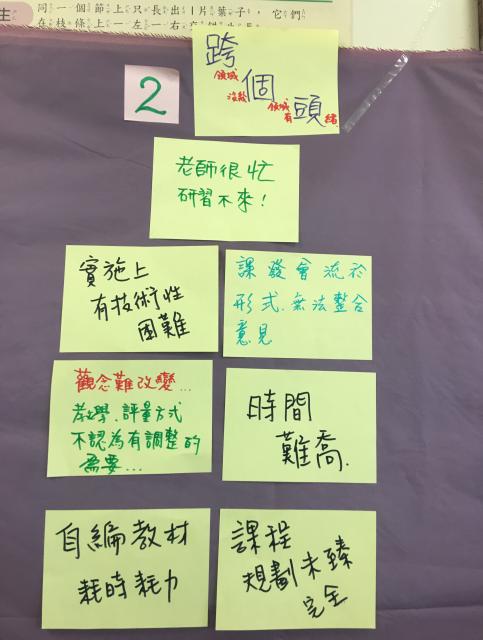 同一個節上只長出1片葉子，它們
在枝條上一左一右
生
2
跨
領域
沒啥
個
領域
有
頭
緒
老師很忙
研習不來！
實施上
有技術性
困難
課發會流於
形式、無法整合
意見
觀念難改變…
教學、評量方式
不認為有調整的
需要…
時間
難喬.
自編教材
耗時耗力
課程
規劃未臻
完全